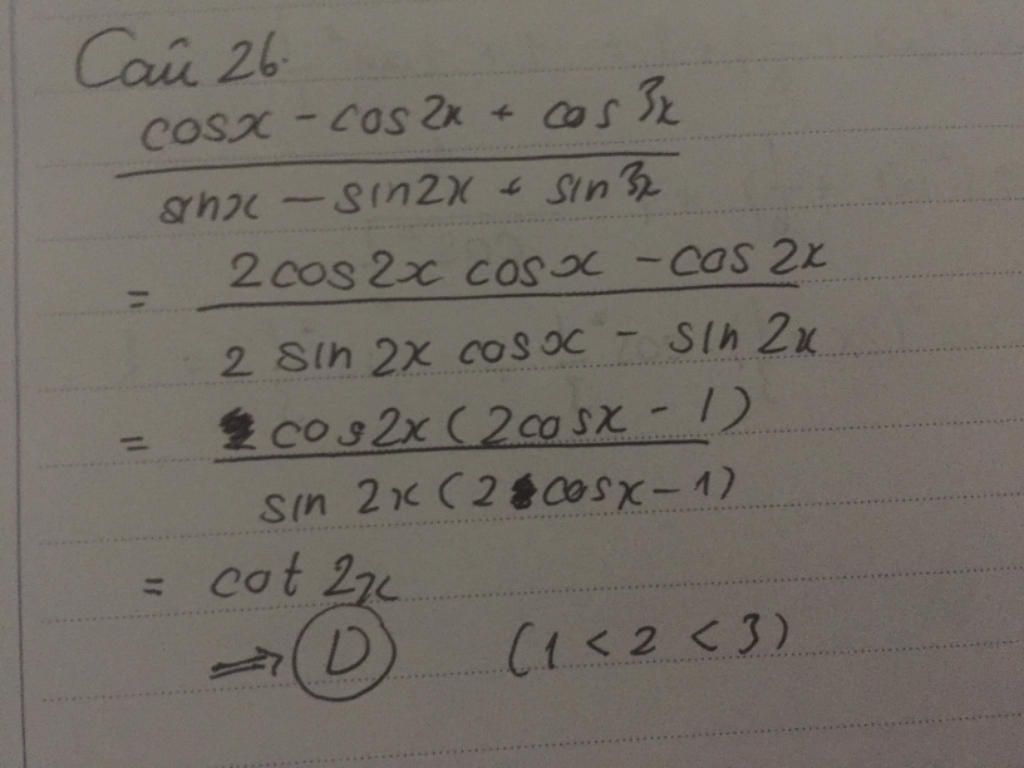 Câu 26.
cosx - cos2x + cos3x
sinx - sin2x + sin3x
= 2cos2x cosx - cos2x
2 sin 2x cosx - sin 2x
= cos2x (2cosx - 1)
sin 2x (2 cosx - 1)
= cot 2x
⇒ D (1 < 2 < 3)